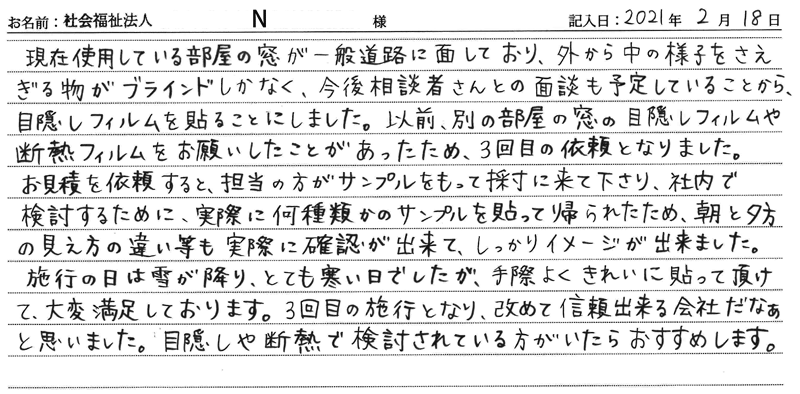 お名前：社会福祉法人 N 様 記入日：2021年 2月 18日
現在使用している部屋の窓が一般道路に面しており、外から中の様子をさえ
ぎる物がブラインドしかなく、今後相談者さんとの面談も予定していることから、
目隠しフィルムを貼ることにしました。以前、別の部屋の窓の目隠しフィルムや
断熱フィルムをお願いしたことがあったため、3回目の依頼となりました。
お見積を依頼すると、担当の方がサンプルをもって採寸に来て下さり、社内で
検討するために、実際に何種類かのサンプルを貼って帰られたため、朝と夕方
の見え方の違い等も実際に確認が出来て、しっかりイメージが出来ました。
施行の日は雪が降り、とても寒い日でしたが、手際よくきれいに貼って頂け
て、大変満足しております。3回目の施行となり、改めて信頼出来る会社だなぁ
と思いました。目隠しや断熱で検討されている方がいたらおすすめします。